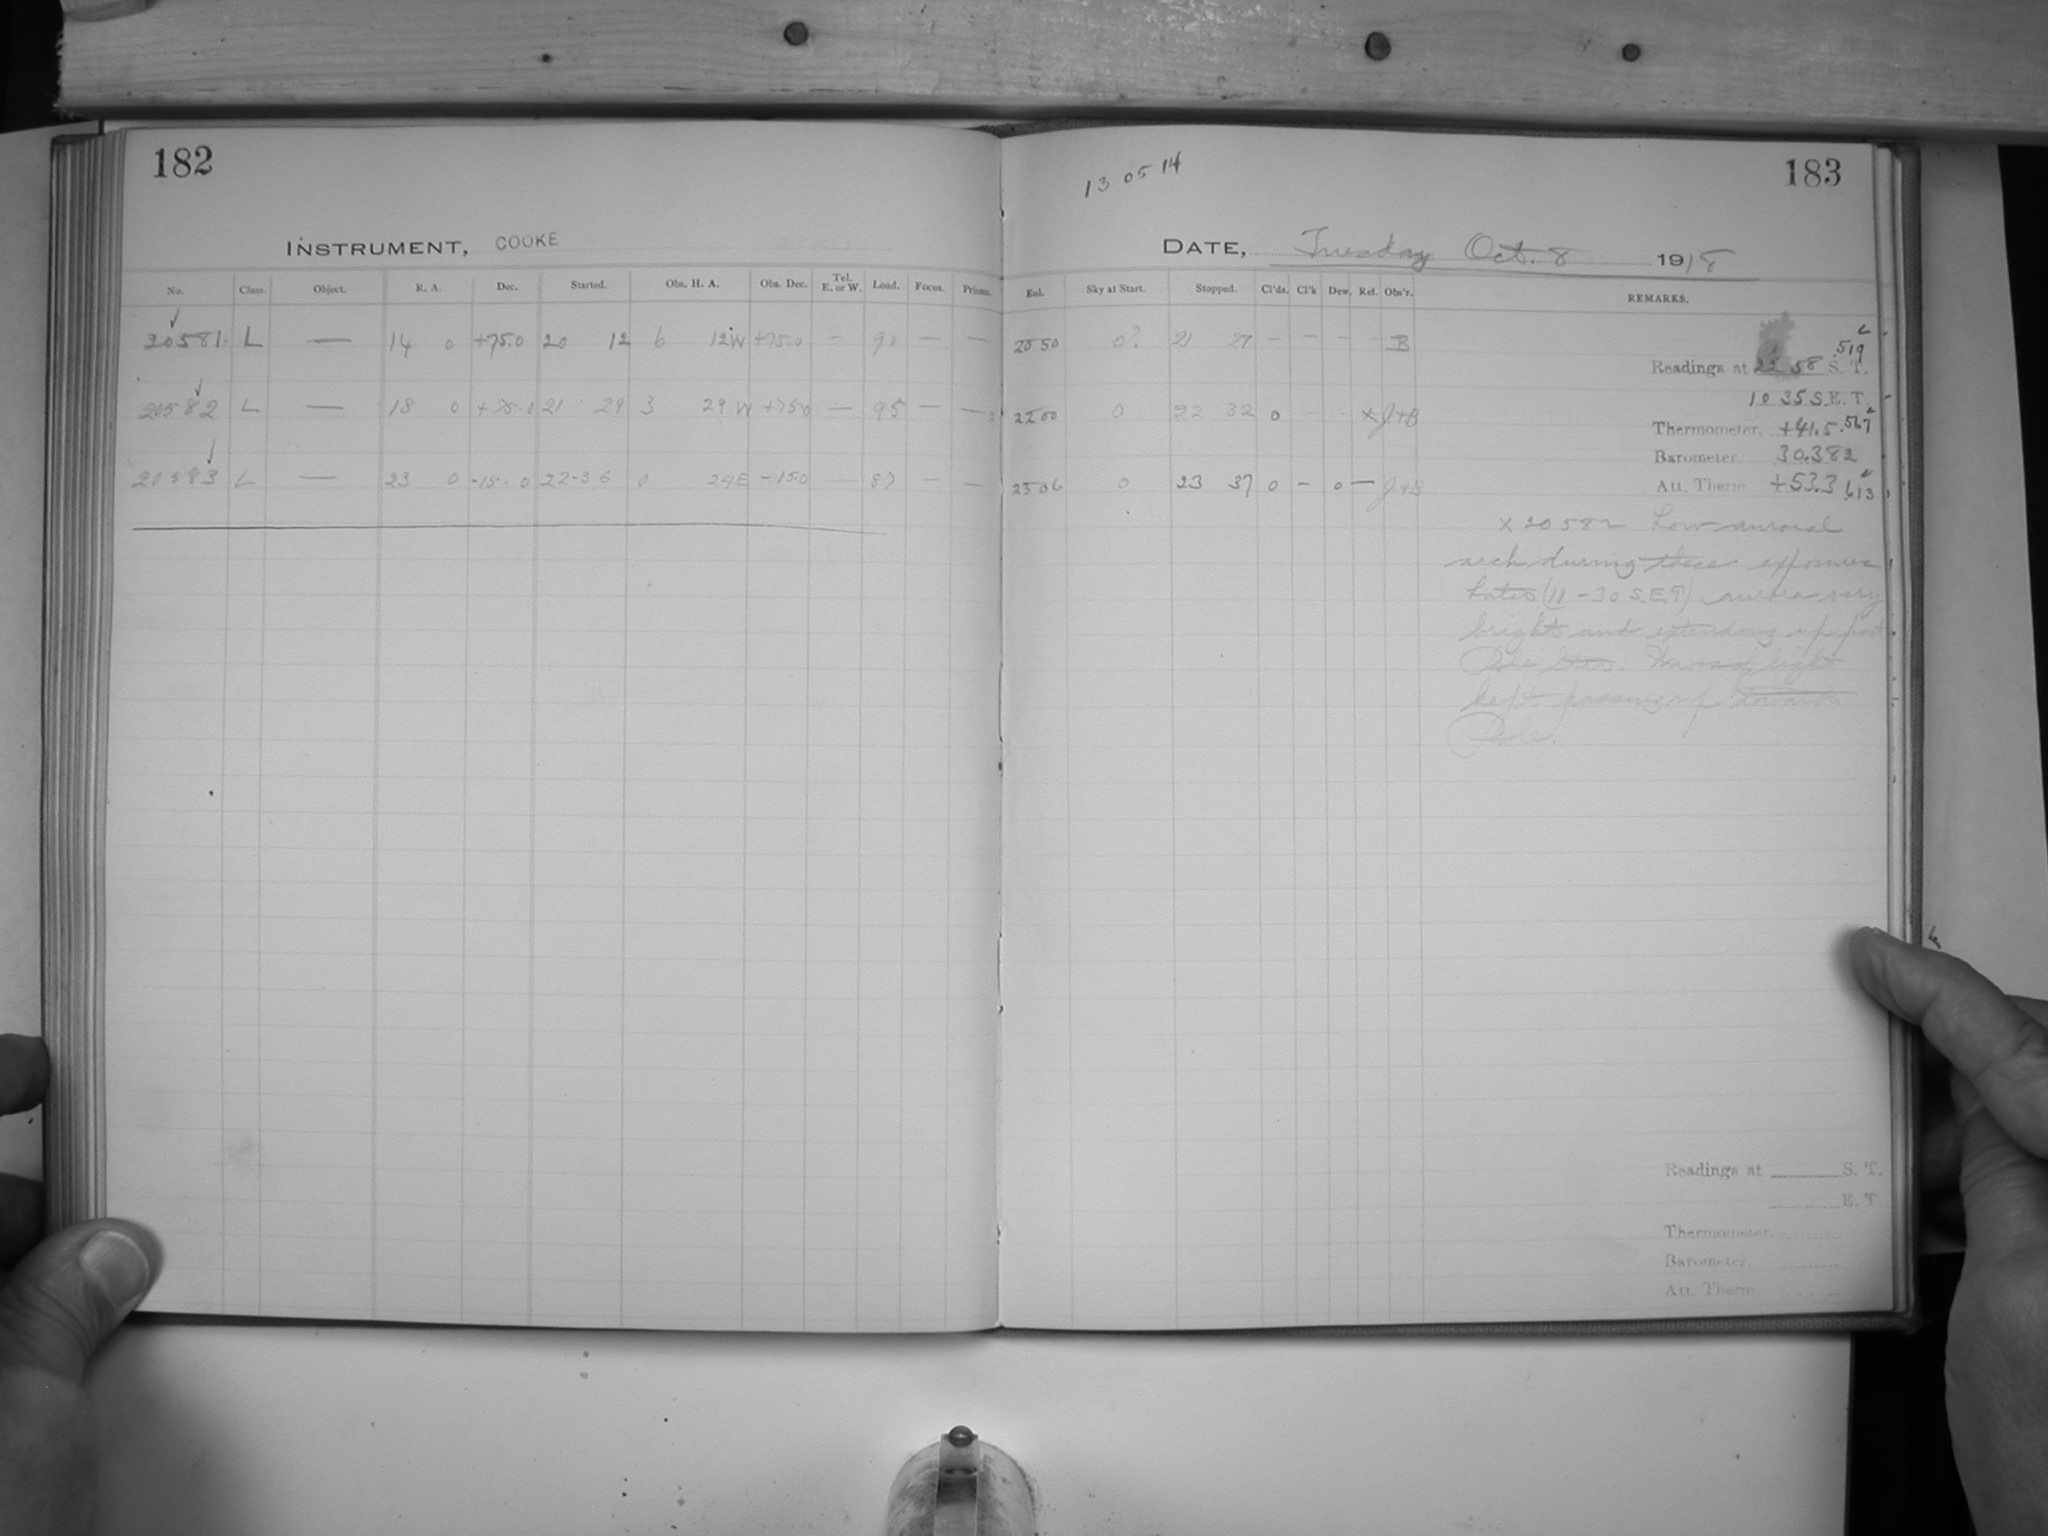 182
INSTRUMENT, COOKE
No. Class. Object. R. A. Dec. Started. Obs. H. A. Obs. Dec. Tel. E. or W. Load. Focus. Prisms.
20581 L — 14 0 +75.0 20 12 6 12W +75.0 — — —
20582 L — 18 0 +75.0 21 29 3 29 W +75.0 — 95 — —
20583 L — 23 0 -15.0 22-36 0 24E -15.0 — 87 — —
183
13 05 14
DATE, Tuesday Oct. 8 1918
Enl. Sky at Start. Stopped. Cl'ds. Cl'k Dew. Rel. Obs'r. REMARKS.
2050 0? 21 27 — — — — B
2200 0 22 32 0 — — X J.+B
2306 0 23 37 0 — 0 — J.+B
.519
Readings at 22 58 S. T.
10 35 S.E. T.
Thermometer. +41.5 .567
Barometer. 30.382
Att. Therm. +53.3 .613
X 20582 Low auroral
arch during these exposures
Later (11-30 S.E.T) aurora very
bright and extending up past
Pole Star. Waves of light
kept passing up towards
Pole.
Readings at S. T.
E. T.
Thermometer.
Barometer.
Att. Therm.